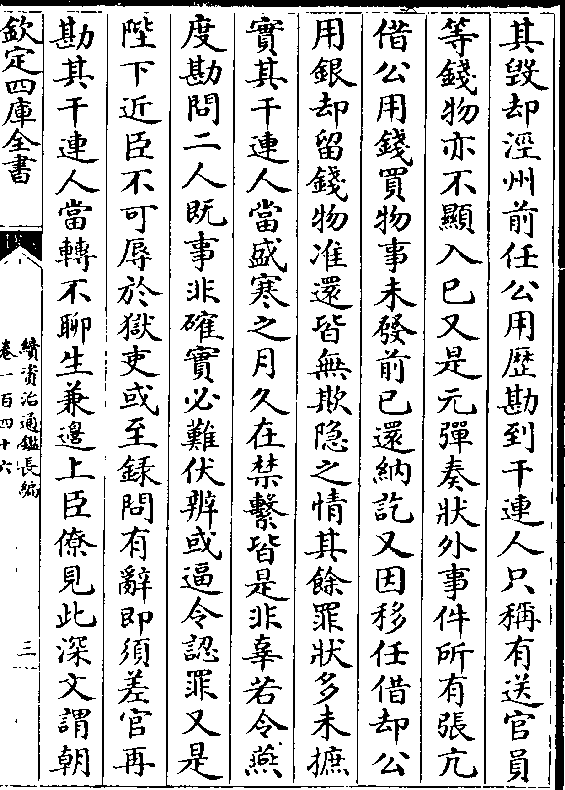 其毀却涇州前任公用歷勘到干連人只稱有送官員
等錢物亦不顯入已又是元彈奏狀外事件所有張亢
借公用錢買物事未發前已還納訖又因移任借却公
用銀却留錢物准還皆無欺隐之情其餘罪狀多未摭
實其干連人當盛寒之月久在禁繫皆是非辜若令燕
度勘問二人既事非確實必難伏辨或逼令認罪又是
陛下近臣不可辱於獄吏或至録問有辭即須差官再
勘其干連人當轉不聊生兼邉上臣僚見此深文謂朝
欽定四庫全書
續資治通鑑長編
卷一百四十六
三